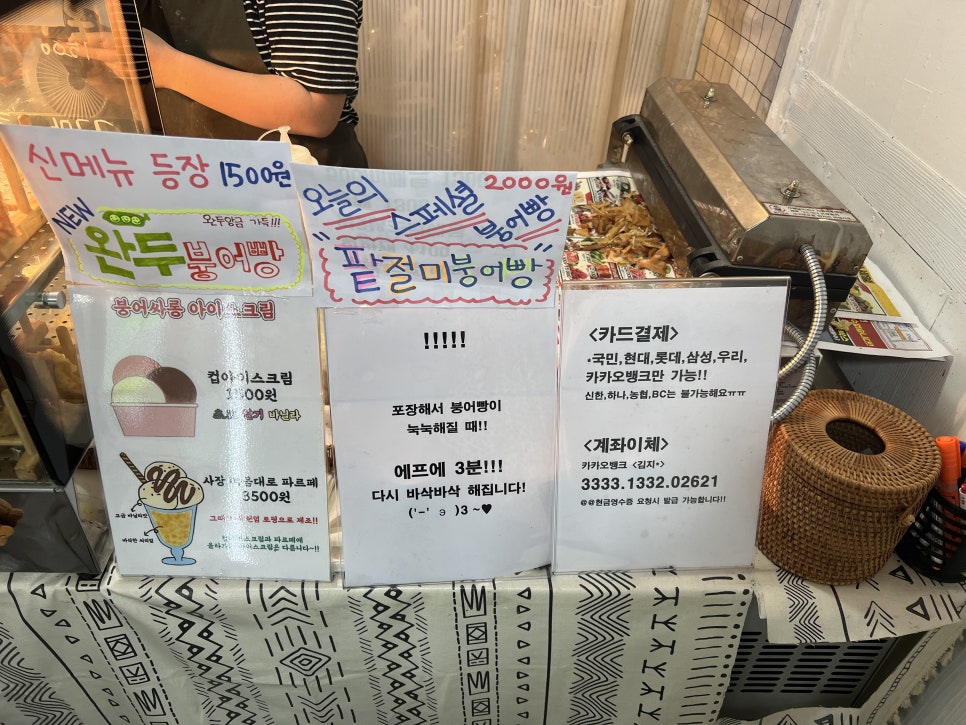 신메뉴 등장 1500원
NEW
완두앙금 가득!!!
완두붕어빵
오늘의 2000원
스페셜
붕어빵
" 팥절미붕어빵 "
붕어싸롱 아이스크림
컵아이스크림
1500원
초코 딸기 바닐라
사장 마음대로 파르페
3500원
고급 바닐라맛
바삭한 씨리얼
토핑으로 제조!!
컵아이스크림과 파르페에
아이스크림은 다릅니다~!!
!!!!!
포장해서 붕어빵이
눅눅해질 때!!
에프에 3분!!!
다시 바삭바삭 해집니다!
('-' ૭ )3 ~♥
<카드결제>
·국민,현대,롯데,삼성,우리,
카카오뱅크만 가능!!
신한,하나,농협,BC는 불가능해요ㅠㅠ
<계좌이체>
카카오뱅크 <김지*>
3333.1332.02621
@@현금영수증 요청시 발급 가능합니다!!